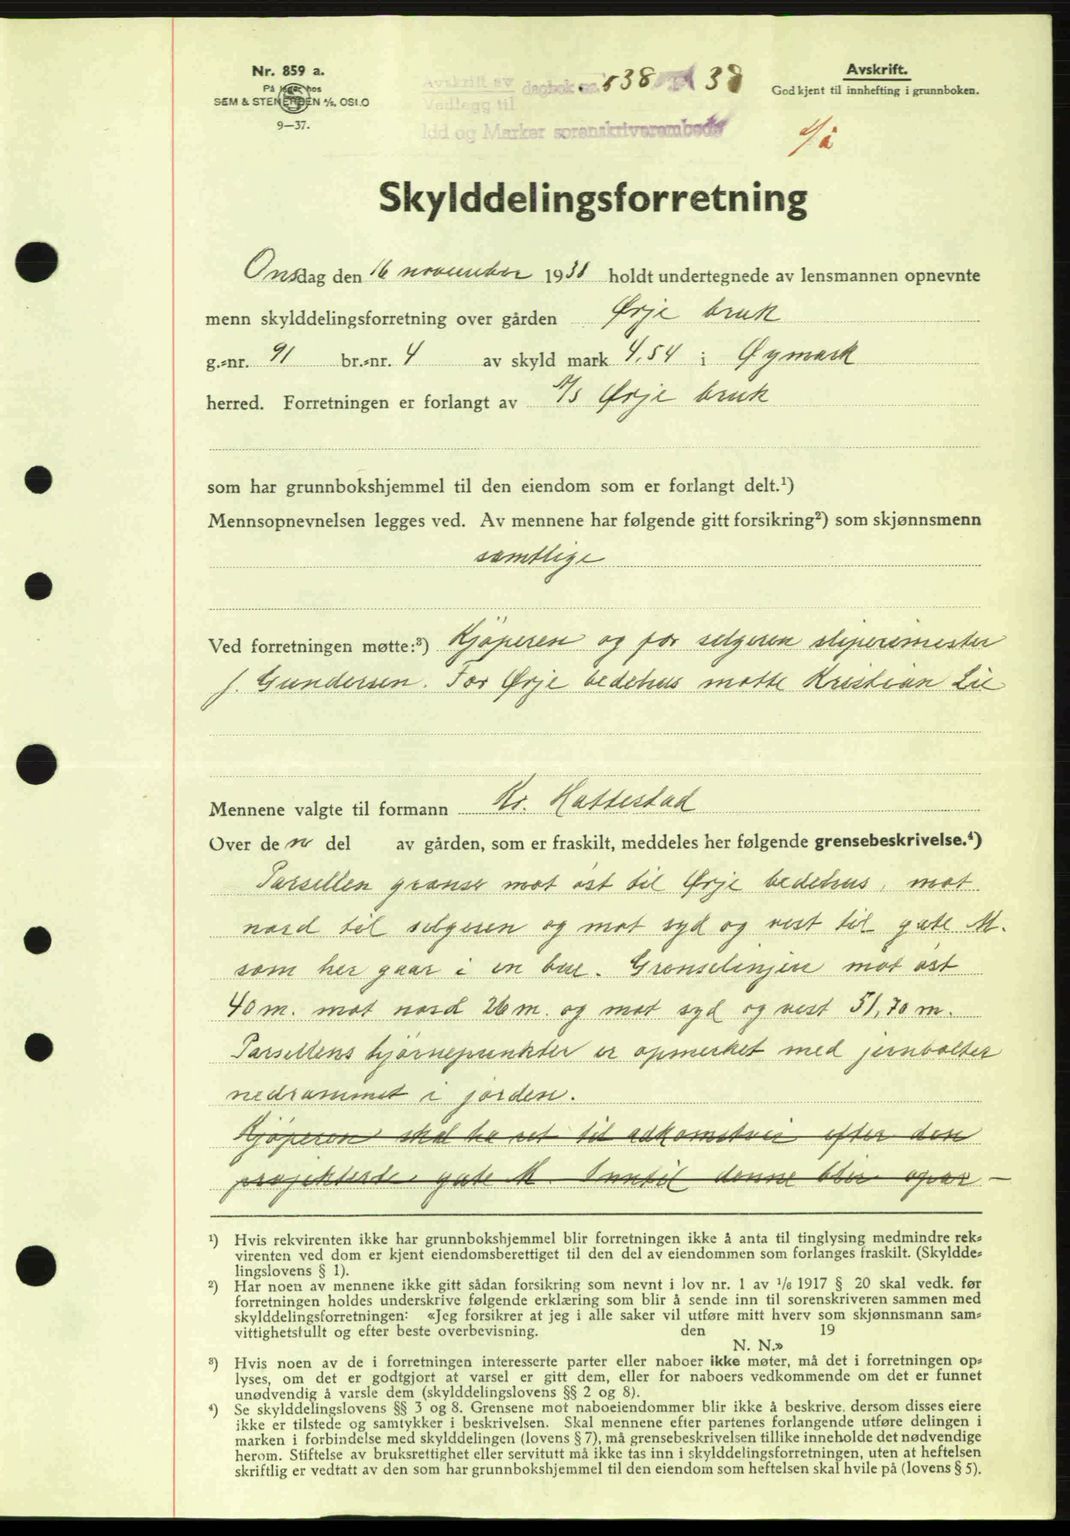 Nr. 859 a.
På lager hos
SEM & STENERSEN A/S, OSLO
9—37.
Avskrift av dagbok nr. 538 38
Vedlegg til
Idd og Marker sorenskriverembede
Avskrift.
Godkjent til innhefting i grunnboken.
Skylddelingsforretning
Onsdag den 16 november 1938 holdt undertegnede av lensmannen opnevnte
menn skylddelingsforretning over gården Ørje bruk
g.-nr. 91 br.-nr. 4 av skyld mark 4,54 i Øymark
herred. Forretningen er forlangt av A/S Ørje bruk
som har grunnbokshjemmel til den eiendom som er forlangt delt.¹)
Mennsopnevnelsen legges ved. Av mennene har følgende gitt forsikring²) som skjønnsmenn
samtlige
Ved forretningen møtte:³) Kjöperen og for selgeren sliperimester
J. Gundersen. For Ørje bedehus møtte Kristian Lie
Mennene valgte til formann Kr. Hattestad
Over den del av gården, som er fraskilt, meddeles her følgende grensebeskrivelse.⁴)
Parsellen grenser mot öst til Ørje bedehus, mot
nord til selgeren og mot syd og vest til gate M.
som her gaar i en bue. Grenselinjen mot öst
40 m. mot nord 26 m. og mot syd og vest 51,70 m.
Parsellens hjörnepunkter er opmerket med jernbolter
nedrammet i jorden.
Kjöperen skal ha ret til adkomstvei efter den
projekterte gate M. Inntil denne blir opar-
¹) Hvis rekvirenten ikke har grunnbokshjemmel blir forretningen ikke å anta til tinglysing medmindre rek-
virenten ved dom er kjent eiendomsberettiget til den del av eiendommen som forlanges fraskilt. (Skyldde-
lingslovens § 1).
²) Har noen av mennene ikke gitt sådan forsikring som nevnt i lov nr. 1 av 1/6 1917 § 20 skal vedk. før
forretningen holdes underskrive følgende erklæring som blir å sende inn til sorenskriveren sammen med
skylddelingsforretningen: «Jeg forsikrer at jeg i alle saker vil utføre mitt hverv som skjønnsmann sam-
vittighetsfullt og efter beste overbevisning. den 19
N. N.»
³) Hvis noen av de i forretningen interesserte parter eller naboer ikke møter, må det i forretningen op-
lyses, om det er godtgjort at varsel er gitt dem, eller for naboers vedkommende om det er funnet
unødvendig å varsle dem (skylddelingslovens §§ 2 og 8).
⁴) Se skylddelingslovens §§ 3 og 8. Grensene mot naboeiendommer blir ikke å beskrive, dersom disses eiere
ikke er tilstede og samtykker i beskrivelsen. Skal mennene efter partenes forlangende utføre delingen i
marken i forbindelse med skylddelingen (lovens § 7), må grensebeskrivelsen tillike inneholde det nødvendige
herom. Stiftelse av bruksrettighet eller servitutt må ikke tas inn i skylddelingsforretningen, uten at heftelsen
skriftlig er vedtatt av den som har grunnbokshjemmel til den eiendom som heftelsen skal hvile på (lovens § 5).